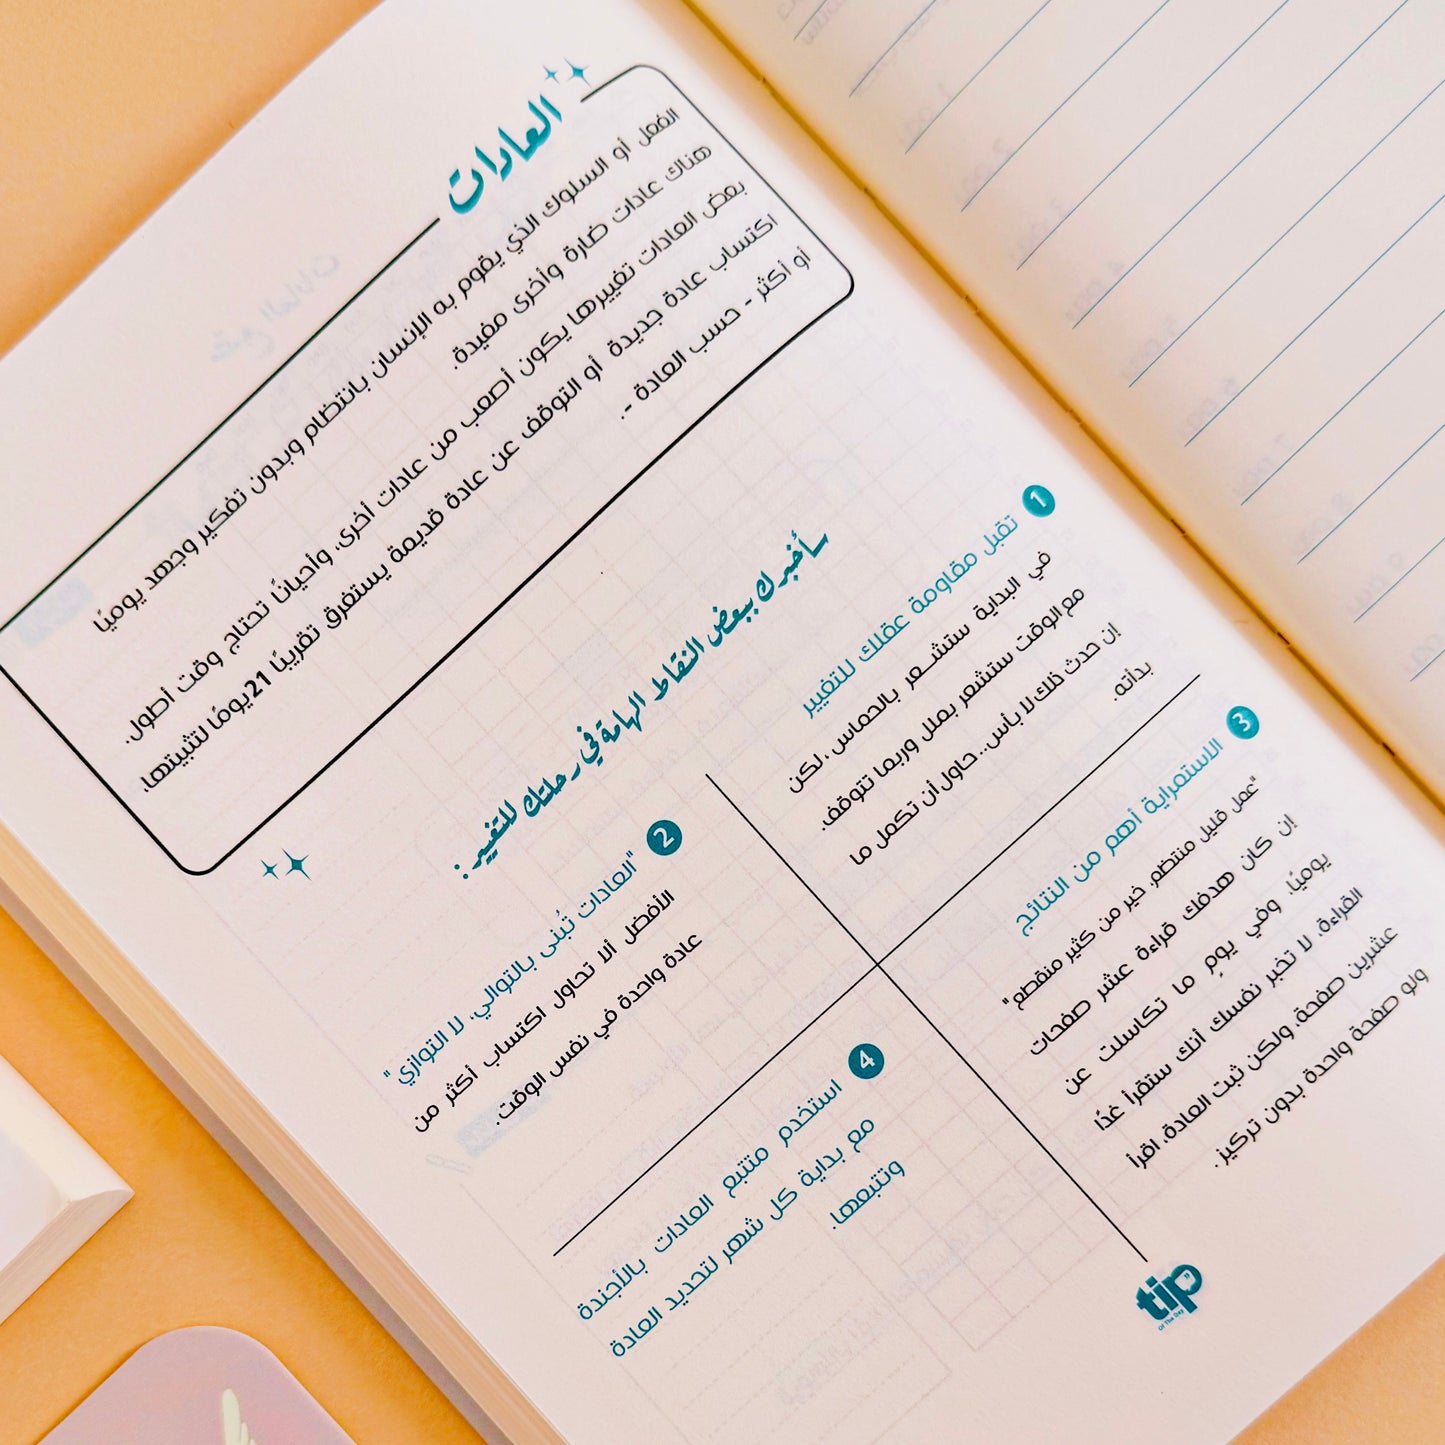 العادات
الفعل أو السلوك الذي يقوم به الإنسان بانتظام وبدون تفكير وجهد يوميًا
هناك عادات ضارة وأخرى مفيدة.
بعض العادات تغييرها يكون أصعب من عادات أخرى، وأحيانًا تحتاج وقت أطول.
اكتساب عادة جديدة أو التوقف عن عادة قديمة يستغرق تقريبًا 21 يومًا لتثبيتها،
أو أكثر - حسب العادة -.
سأخبرك ببعض النقاط الهامة في رحلتك للتغيير:
1
تقبل مقاومة عقلك للتغيير
في البداية ستشعر بالحماس ،لكن
مع الوقت ستشعر بملل وربما تتوقف.
إن حدث ذلك لا بأس.. حاول أن تكمل ما
بدأته.
2
"العادات تُبنى بالتوالي، لا التوازي"
الأفضل ألا تحاول اكتساب أكثر من
عادة واحدة في نفس الوقت.
3
الاستمراية أهم من النتائج
"عمل قليل منتظم، خير من كثير منقطع"
إن كان هدفك قراءة عشر صفحات
يوميًا، وفي يومٍ ما تكاسلت عن
القراءة، لا تخبر نفسك أنك ستقرأ غدًا
عشرين صفحة، ولكن ثبت العادة، اقرأ
ولو صفحة واحدة بدون تركيز.
4
استخدم متتبع العادات بالأجندة
مع بداية كل شهر لتحديد العادة
وتتبعها.
tip
Of The Day